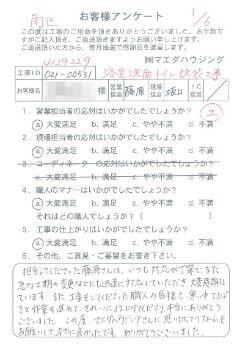 南区
お客様アンケート
1/6
この度は工事のご用命を頂きありがとうございました。お手数で
すがご記入頂き、ご返送頂きますようお願い申し上げます。
ご返送頂いた方から、毎月抽選で感謝品を進呈します。
4129229
㈱マエダハウジング
工事ID 021-00531 浴室洗面トイレ改装工事
お客様名 営業担当 藤原 現場担当 坂口
1. 営業担当者の応対はいかがでしたでしょうか?
ⓐ 大変満足 b. 満足 c. やや不満 d. 不満
2. 現場担当者の応対はいかがでしたでしょうか?
ⓐ 大変満足 b. 満足 c. やや不満 d. 不満
3. コーディネーターの応対はいかがでしたでしょうか?
a. 大変満足 b. 満足 c. やや不満 d. 不満
4. 職人のマナーはいかがでしたでしょうか?
ⓐ 大変満足 b. 満足 c. やや不満 d. 不満
それはどの職人でしょう?( )
5. 工事の仕上がりはいかがでしたでしょうか?
ⓐ 大変満足 b. 満足 c. やや不満 d. 不満
6. その他、ご意見・ご要望をお書き下さい。
担当してくださった藤原さんは、いつも対応が丁寧で、また
急な工期の変更などにも迅速に対応していただき 大変感謝し
ています。また工事をしてくださった職人の皆様も 寒い中
作業を進めて、きれいに仕上げてくださり、本当にありがとう
ございました。この度 マエダハウジングさんに 思い切ってリフォームを
お願いして本当に良かったです。ありがとうございました。